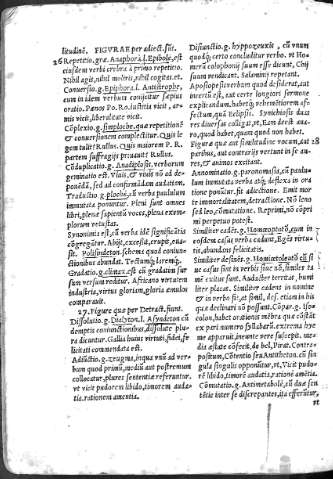 litudinē. FIGVRAE per adiect. fiūt.
26 Repetitio, grę. Anaphora. l. Epibole, est
eiusdem verbi crebra a primo repetitio.
Nihil agit, nihil moliris, nihil cogitas. et.
Conuersio. g. Epiphora. l. Antistrophe,
eum in idem verbum conijcitur sæpius
oratio. Pœnos Po. Ro. iustitia vicit, ar-
mis vicit, liberalitate vicit.
Cōplexio. g. simploche. quæ repetitionē
et conuersionem complectitur. Quis le
gem tulit? Rullus. Quis maiorem P. R.
partem suffragijs priuauit? Rullus.
Cōduplicatio. g. Anadiplosis. verborum
geminatio est. Viuis, & viuis nō ad de-
ponēdā, sed ad confirmādam audaciam.
Traductio. g. ploche, cū verba paululum
immutata ponuntur. Pleni sunt omnes
libri, plenæ sapientū voces, plena exem-
plorum vetustas.
Synonimia est, cū verba idē significātia
cōgregātur. Abijt, excessit, erupit, euasit.
Polisindeton. schema quod coniun-
ctionibus abundat. Tectumq; laremq;
Gradatio. g. climax. est cū gradatim sur
sum versum reditur. Africano virtutem
industria, virtus gloriam, gloria emulos
comparauit.
27. Figuræ quæ per Detract. fiunt.
Dissolutio. g. Dialyton. l. Asyndeton cū
demptis coniunctionibus, dissolute plu-
ra dicuntur. Gallus huius virtuti, fidei, fe
licitati commendata est.
Adiūctio. g. zeugma, in qua vnū ad ver-
bum quod primū, mediū aut postremum
collocatur, plures sententiæ referuntur.
vt vicit pudorem libido, timorem auda-
tia, rationem amentia.
Disiunctio. g. cū vnum
quodq; certo concluditur verbo. vt Ho-
merū colophonij suum esse dicunt, Chij
suum vendicant. Salaminij repetant.
Aposiopesis verbum quod desiderat, aut
incertū est, aut certe longiori sermone
explicandum, habetq; vehementiorem af-
fectum, quā Eclipsis. Synechiosis duas
res diuersas colligat, vt, Eam deest aua-
ro, quod habet, quam quod non habet.
Figuræ quæ aut similitudine vocum, aut 28
paribus, aut contrarijs vertunt in se au-
res, & animos excitant.
Annominatio. g. paronomasia, cū paulu-
lum immutata verba atq; deflexa in ora
tione ponuntur. fit adiectione. Emit mor
te immortalitatem, detractione. Nō leno
sed leo, cōmutatione. Reprimi, nō cōpri
mi potest.
Similiter cadēs. g. Homœoptotō, eum in
eosdem casus verba cadunt, Eges virtu-
tis, abundans felicitatis.
Similiter desinēs. g. Homiœteleutō est si
ue casus sint in verbis siue nō, similes ta
mē exitus sunt. Audacter territas, humi
liter placas. Similiter cadens in nomine
& in verbo fit, et simil. des. etiam in his
quæ declinari nō possunt. Cōpar. g. Iso-
colon, habet orationis mēbra quæ cōstāt
ex pari numero syllabarū. extrema hye
me apparuit, ineunte vere suscepit. me-
dia æstate cōfecit. de bel. Pirat. Contra-
positum, Cōtentio seu Antitheton. cū sin
gula singulis opponūtur, vt, Vicit pudo-
rē libido, timorē audatia, rationē amētia.
Cōmutatio. g. Antimetabolē, cū duæ sen
tētiæ inter se discrepantes, ita efferuntur,